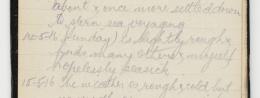 about & once more settled down
to stern sea voyaging
(Sunday) is slightly rough &
finds many others & myself
hopelessly seasick
15-5-16 The weather is rough & cold but